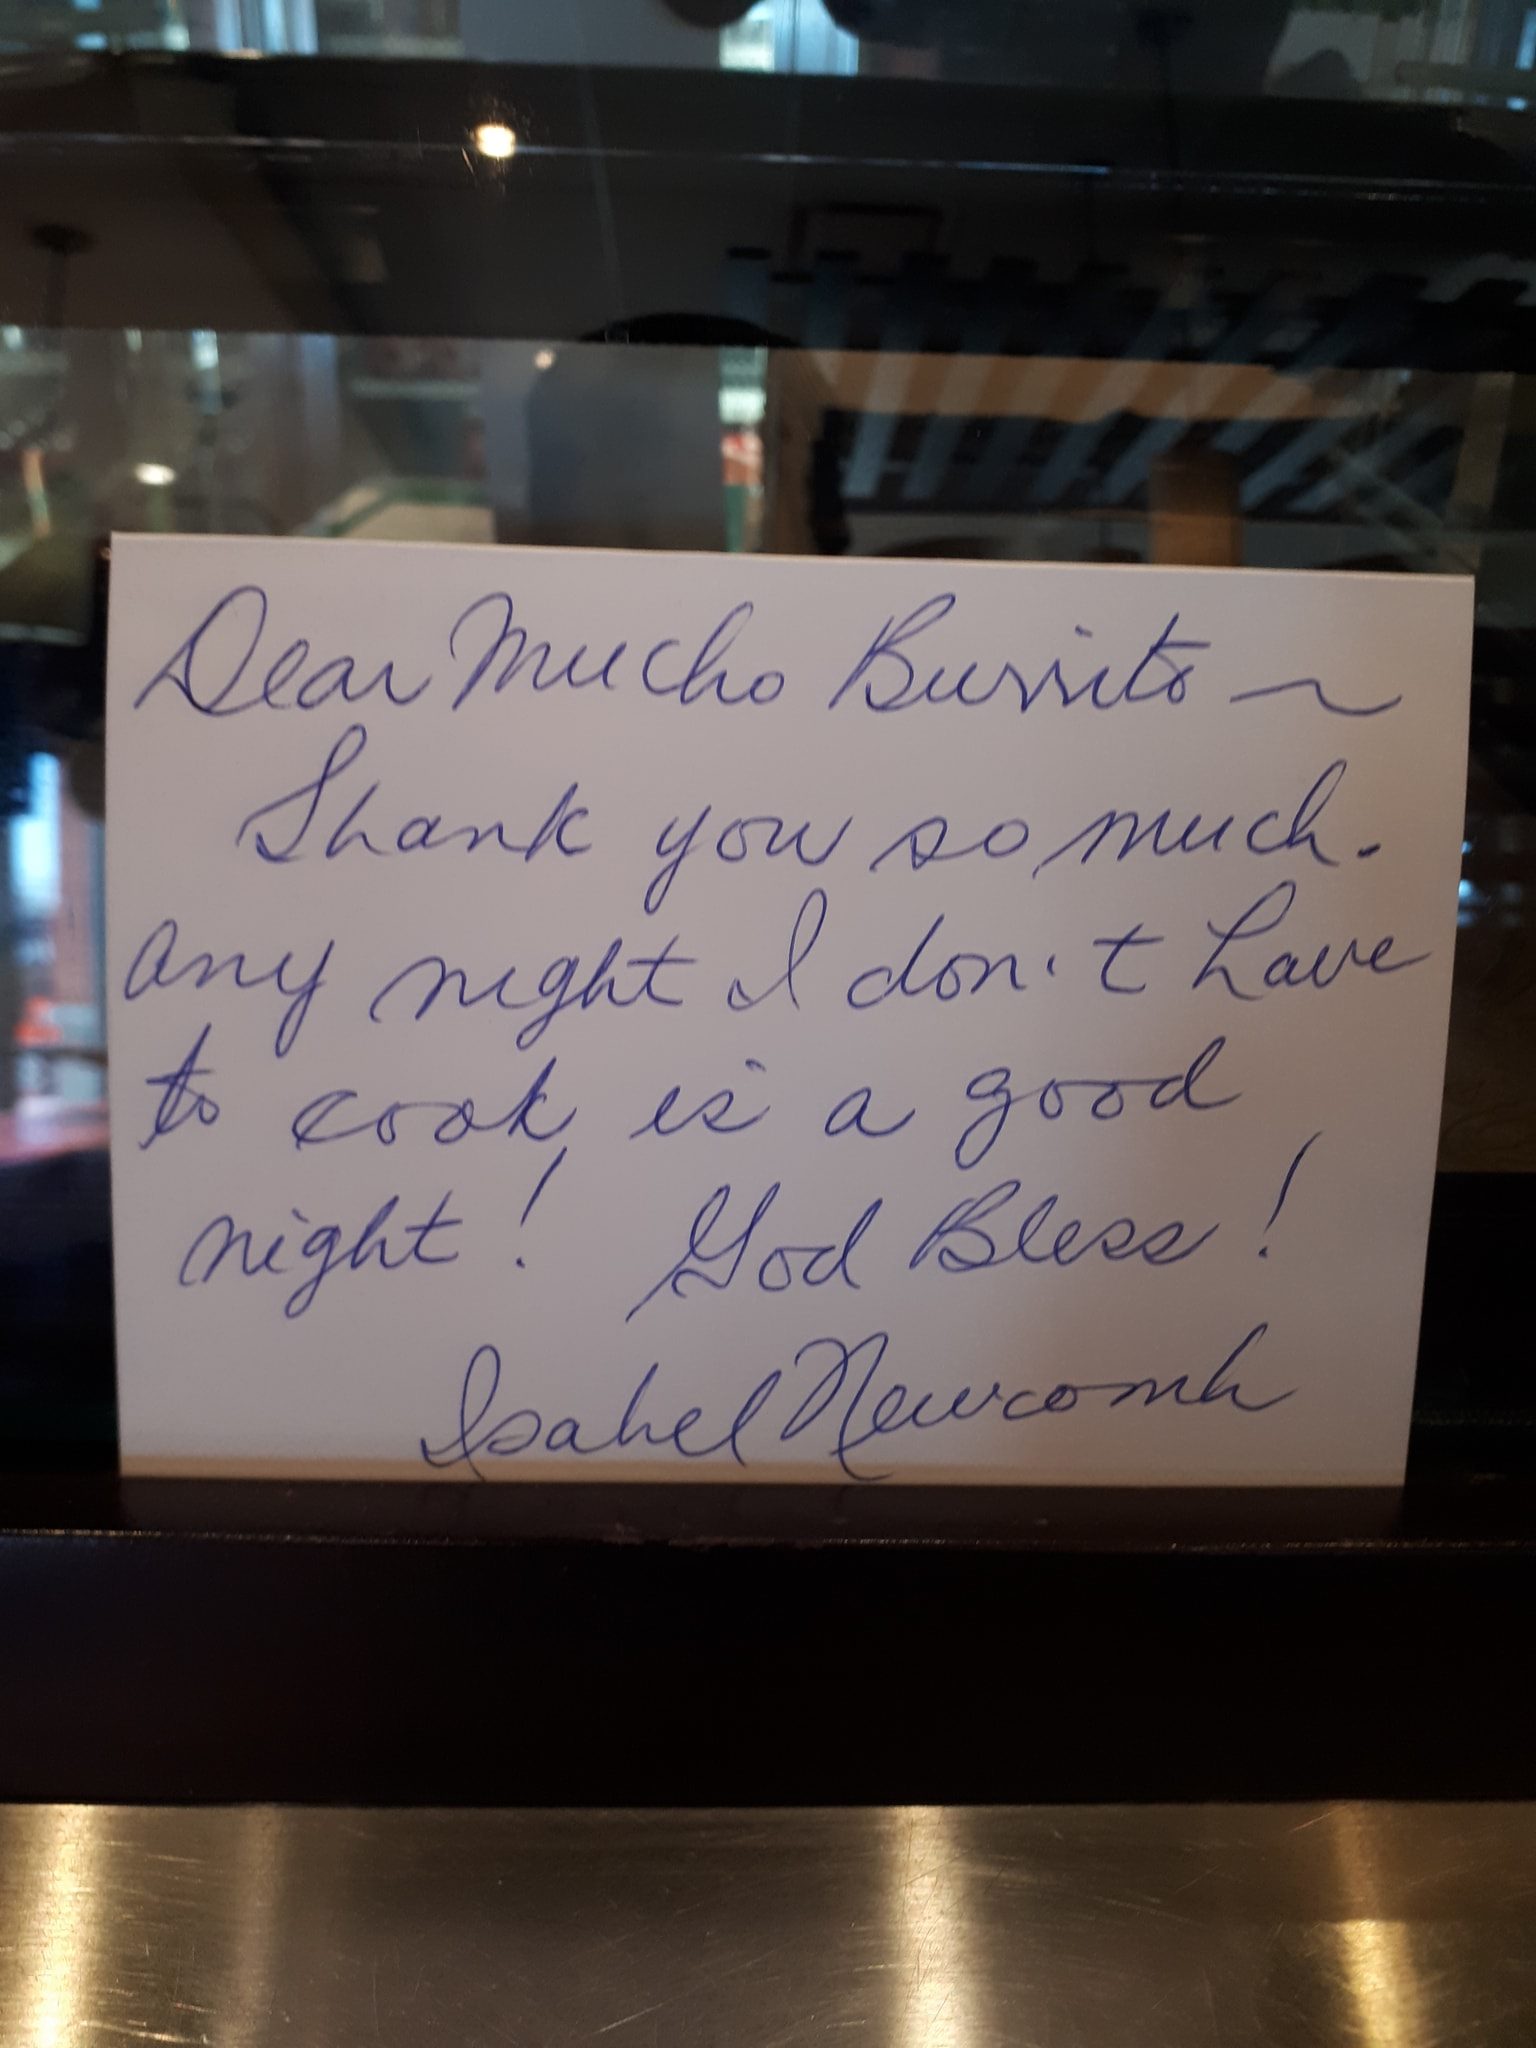 Dear Mucho Burrito ~
Thank you so much.
Any night I don't have
to cook is a good
night! God Bless!
Isabel Newcomb